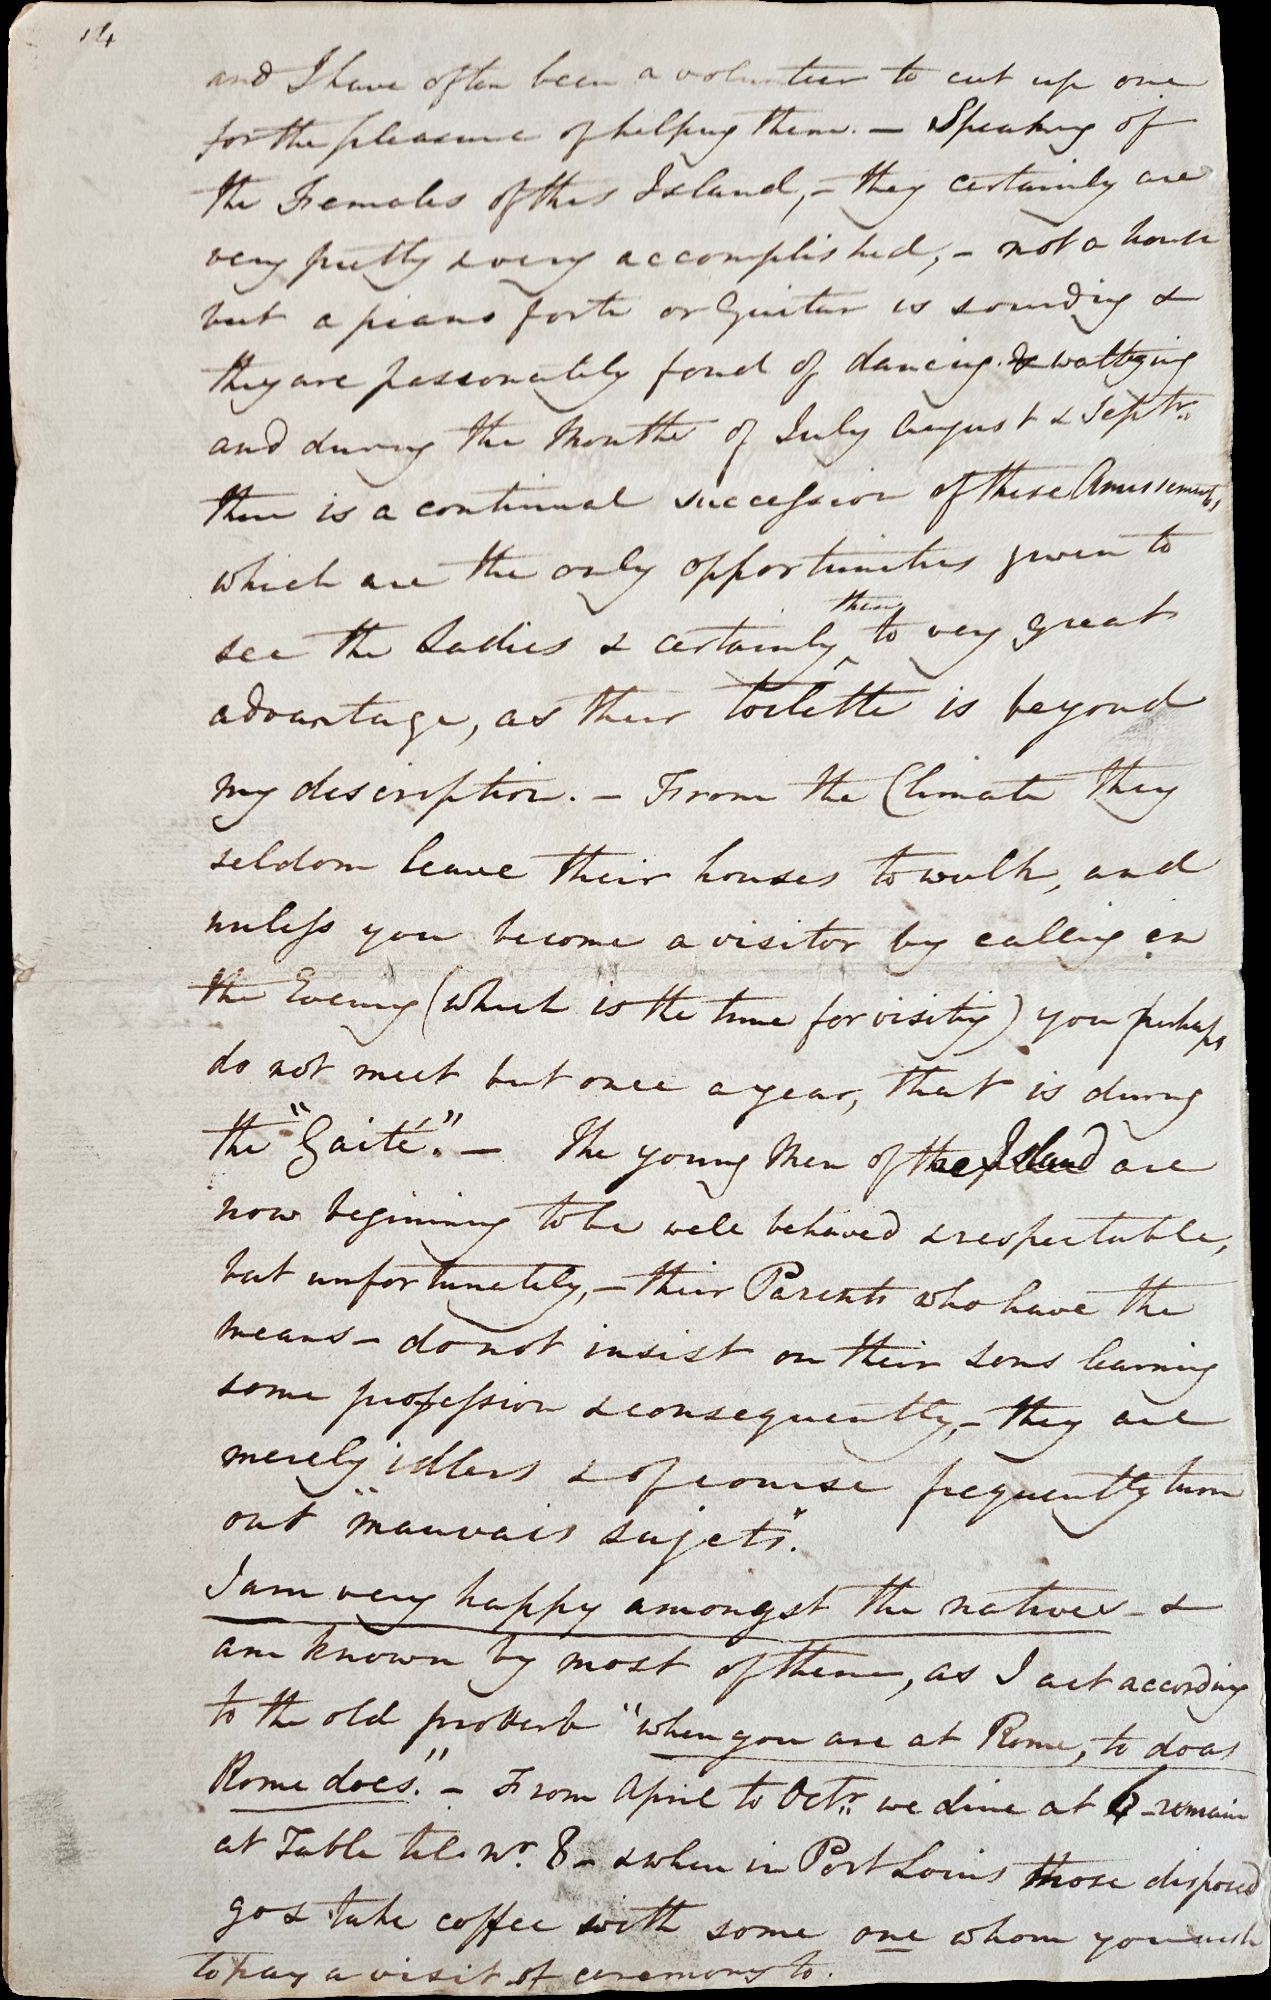 14
and I have often been a volunteer to cut up one
for the pleasure of helping them. — Speaking of
the Females of this Island, – they certainly are
very pretty & very accomplished, – not a house
but a piano forte or Guitar is sounding &
they are passionately fond of dancing & waltzing
and during the Months of July August & Septr.
there is a continual succession of these Amusements,
which are the only opportunities given to
see the Ladies & certainly ^then to very great
advantage, as their toilette is beyond
my description. – From the Climate they
seldom leave their houses to walk, and
unless you become a visitor by calling in
the Evening (which is the time for visiting) you perhaps
do not meet but once a year, that is during
the "Gaité". — The young Men of the Island are
now begining to be well behaved & respectable,
but unfortunately, – their Parents who have the
means – do not insist on their sons learning
some profession & consequently, – they are
merely idlers & of course frequently turn
out "mauvais sujets".
I am very happy amongst the natives – &
am known by most of them, as I act according
to the old proverb "when you are at Rome, to do as
Rome does." – From April to Octr. we dine at 6 – remain
at Table till nr. 8 – & when in Port Louis those disposed
go & take coffee with some one whom you wish
to pay a visit of ceremony to.